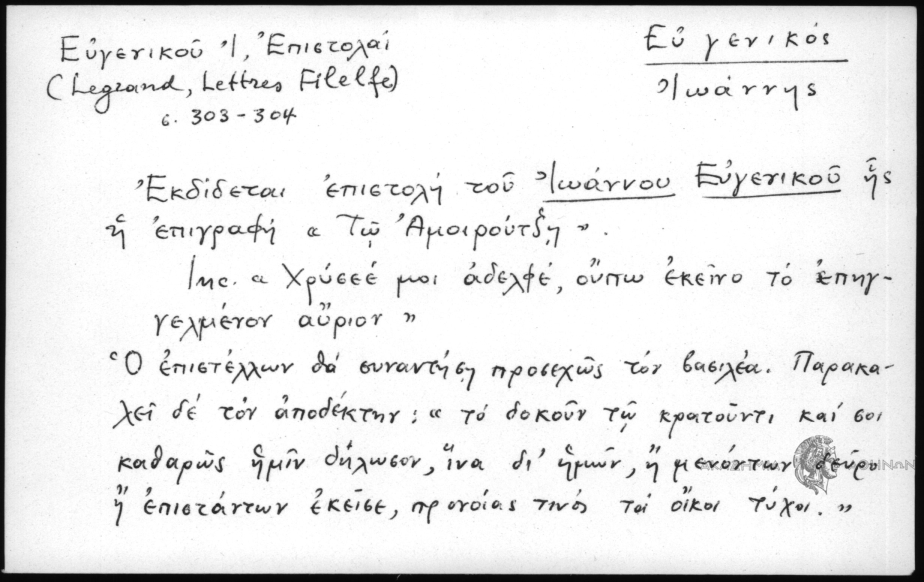 Εὐγενικοῦ Ἰ, Ἐπιστολαί
(Legrand, Lettres Filelfe)
σ. 303-304
Εὐγενικός
Ἰωάννης
Ἐκδίδεται ἐπιστολή τοῦ Ἰωάννου Εὐγενικοῦ ἧς
ἡ ἐπιγραφή « Τῷ Ἀμοιρούτζῃ ».
Inc. « Χρύσεέ μοι ἀδελφέ, οὔπω ἐκεῖνο τό ἐπηγ-
γελμένον αὔριον »
Ὁ ἐπιστέλλων θά συναντήσῃ προσεχῶς τόν βασιλέα. Παρακα-
λεῖ δέ τόν ἀποδέκτην: « τό δοκοῦν τῷ κρατοῦντι καί σοι
καθαρῶς ἡμῖν δήλωσον, ἵνα δι' ἡμῶν, ἤ μενόντων δεῦρο
ἤ ἐπιστάντων ἐκεῖσε, προνοίας τινός τά οἴκοι τύχοι. »